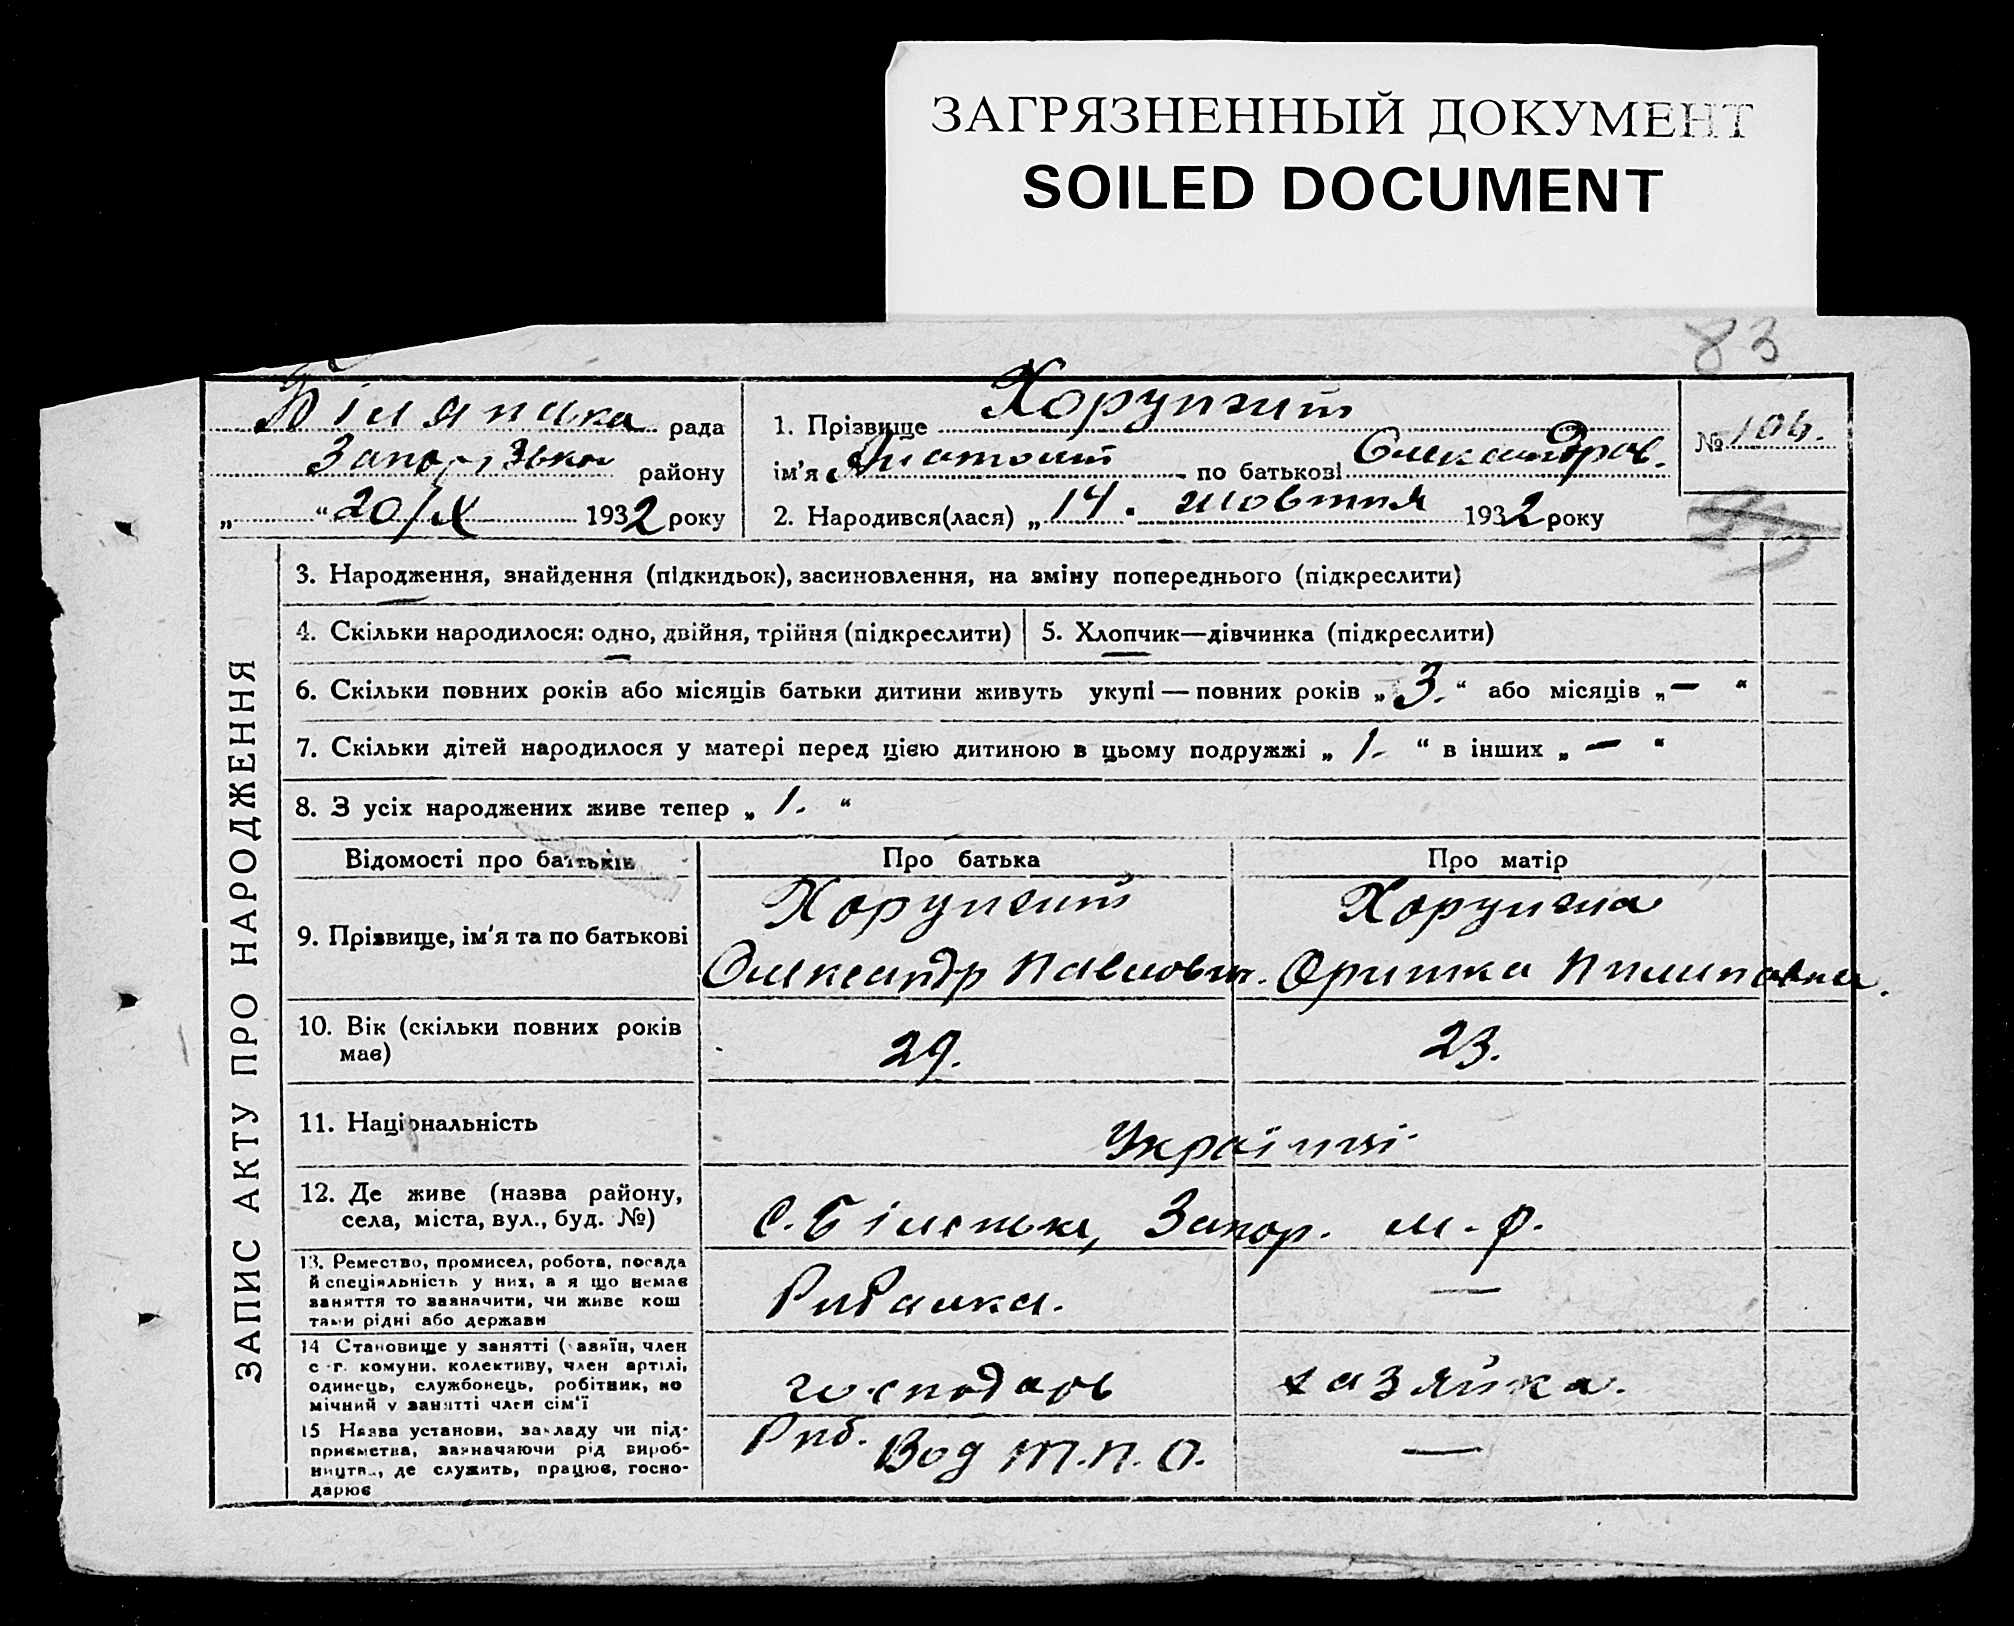 ЗАГРЯЗНЕННЫЙ ДОКУМЕНТ
SOILED DOCUMENT
83
рада
Запорізька району
„ “ 20/X 1932 року
1. Прізвище Хорунжий
ім'я Анатолій по батькові Олександров.
2. Народився(лася) „ 14. “ жовтня 1932 року
№ 106.
ЗАПИС АКТУ ПРО НАРОДЖЕННЯ
3. Народження, знайдення (підкидьок), засиновлення, на зміну попереднього (підкреслити)
4. Скільки народилося: одно, двійня, трійня (підкреслити)
5. Хлопчик—дівчинка (підкреслити)
6. Скільки повних років або місяців батьки дитини живуть укупі — повних років „ 3. “ або місяців „ — “
7. Скільки дітей народилося у матері перед цією дитиною в цьому подружжі „ 1. “ в інших „ — “
8. З усіх народжених живе тепер „ 1. “
Відомості про батьків
Про батька
Про матір
9. Прізвище, ім'я та по батькові
Хорунжий
Олександр Павлович.
Хорунжа
Оришка Пилиповна.
10. Вік (скільки повних років
має)
29.
23.
11. Національність
Українці
12. Де живе (назва району,
села, міста, вул., буд. №)
с. Біленьке, Запор. м-р.
13. Ремество, промисел, робота, посада
й спеціяльність у них, а я що немає
заняття то зазначити, чи живе кош
тами рідні або держави
Рибалка.
—
14 Становище у занятті (хазяїн, член
с.-г. комуни, колективу, член артілі,
одинець, службовець, робітник, по
мічний у занятті член сім'ї
господарь
хазяйка.
15 Назва установи, закладу чи під-
приємства, зазначаючи рід вироб-
ництва, де служить, працює, госпо-
дарює
Риб. Вод Т.П.О.
—